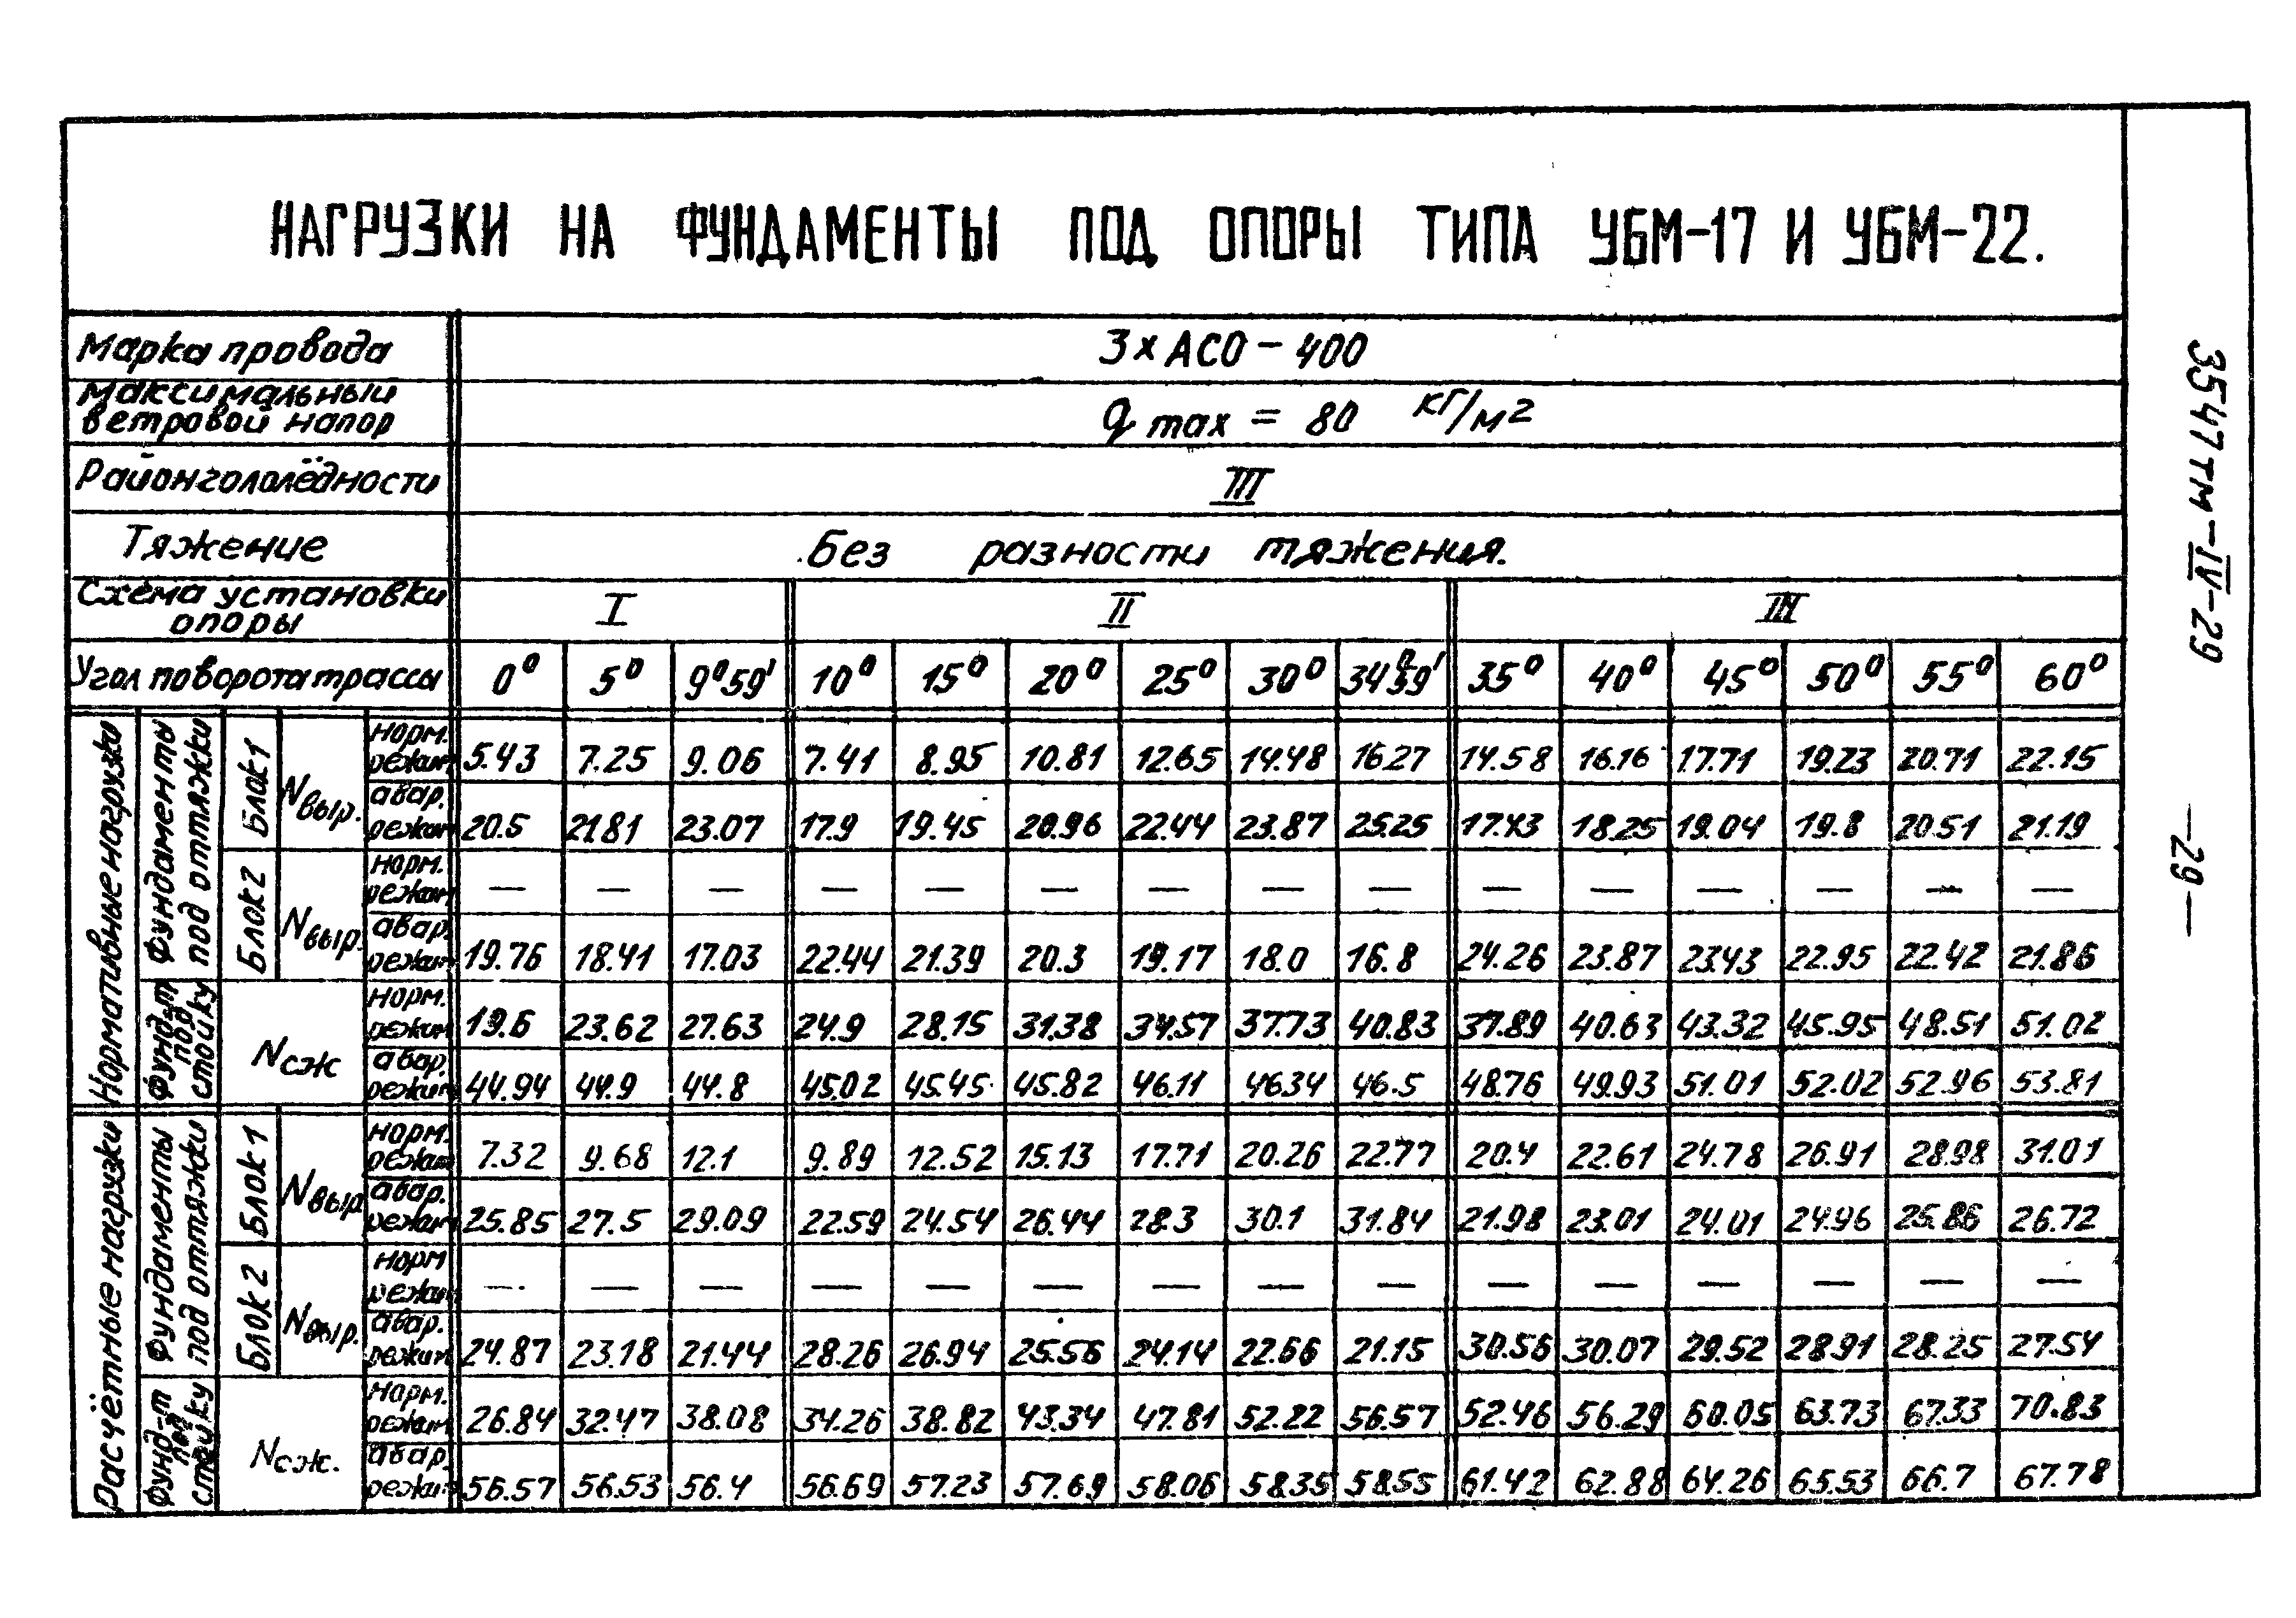 НАГРУЗКИ НА ФУНДАМЕНТЫ ПОД ОПОРЫ ТИПА УБМ-17 И УБМ-22.
Марка провода 3×АСО-400
Максимальный
ветровой напор q max = 80 кГ/м²
Район гололёдности III
Тяжение Без разности тяжения.
Схема установки
опоры I II III
Угол поворота трассы 0° 5° 9°59' 10° 15° 20° 25° 30° 34°59' 35° 40° 45° 50° 55° 60°
Нормативные нагрузки
Фундаменты
под оттяжки
Блок 1
Nвыр.
норм.
режим 5.43 7.25 9.06 7.41 8.95 10.81 12.65 14.48 16.27 14.58 16.16 17.71 19.23 20.71 22.15
авар.
режим 20.5 21.81 23.07 17.9 19.45 20.96 22.44 23.87 25.25 17.43 18.25 19.04 19.8 20.51 21.19
Блок 2
Nвыр.
норм.
режим — — — — — — — — — — — — — — —
авар.
режим 19.76 18.41 17.03 22.44 21.39 20.3 19.17 18.0 16.8 24.26 23.87 23.43 22.95 22.42 21.86
Фунд-т
под
стойку
Nсж
норм.
режим 19.6 23.62 27.63 24.9 28.15 31.38 34.57 37.73 40.83 37.89 40.63 43.32 45.95 48.51 51.02
авар.
режим 44.94 44.9 44.8 45.02 45.45 45.82 46.11 46.34 46.5 48.76 49.93 51.01 52.02 52.96 53.81
Расчётные нагрузки
Фундаменты
под оттяжки
Блок 1
Nвыр
норм.
режим 7.32 9.68 12.1 9.89 12.52 15.13 17.71 20.26 22.77 20.4 22.61 24.78 26.91 28.98 31.01
авар.
режим 25.85 27.5 29.09 22.59 24.54 26.44 28.3 30.1 31.84 21.98 23.01 24.01 24.96 25.86 26.72
Блок 2
Nвыр.
норм
режим — — — — — — — — — — — — — — —
авар.
режим 24.87 23.18 21.44 28.26 26.94 25.56 24.14 22.66 21.15 30.56 30.07 29.52 28.91 28.25 27.54
Фунд-т
под
стойку
Nсж.
норм.
режим 26.84 32.47 38.08 34.26 38.82 43.34 47.81 52.22 56.57 52.46 56.29 60.05 63.73 67.33 70.83
авар.
режим 56.57 56.53 56.4 56.69 57.23 57.69 58.06 58.35 58.55 61.42 62.88 64.26 65.53 66.7 67.78
3547тм-IV-29
—29—